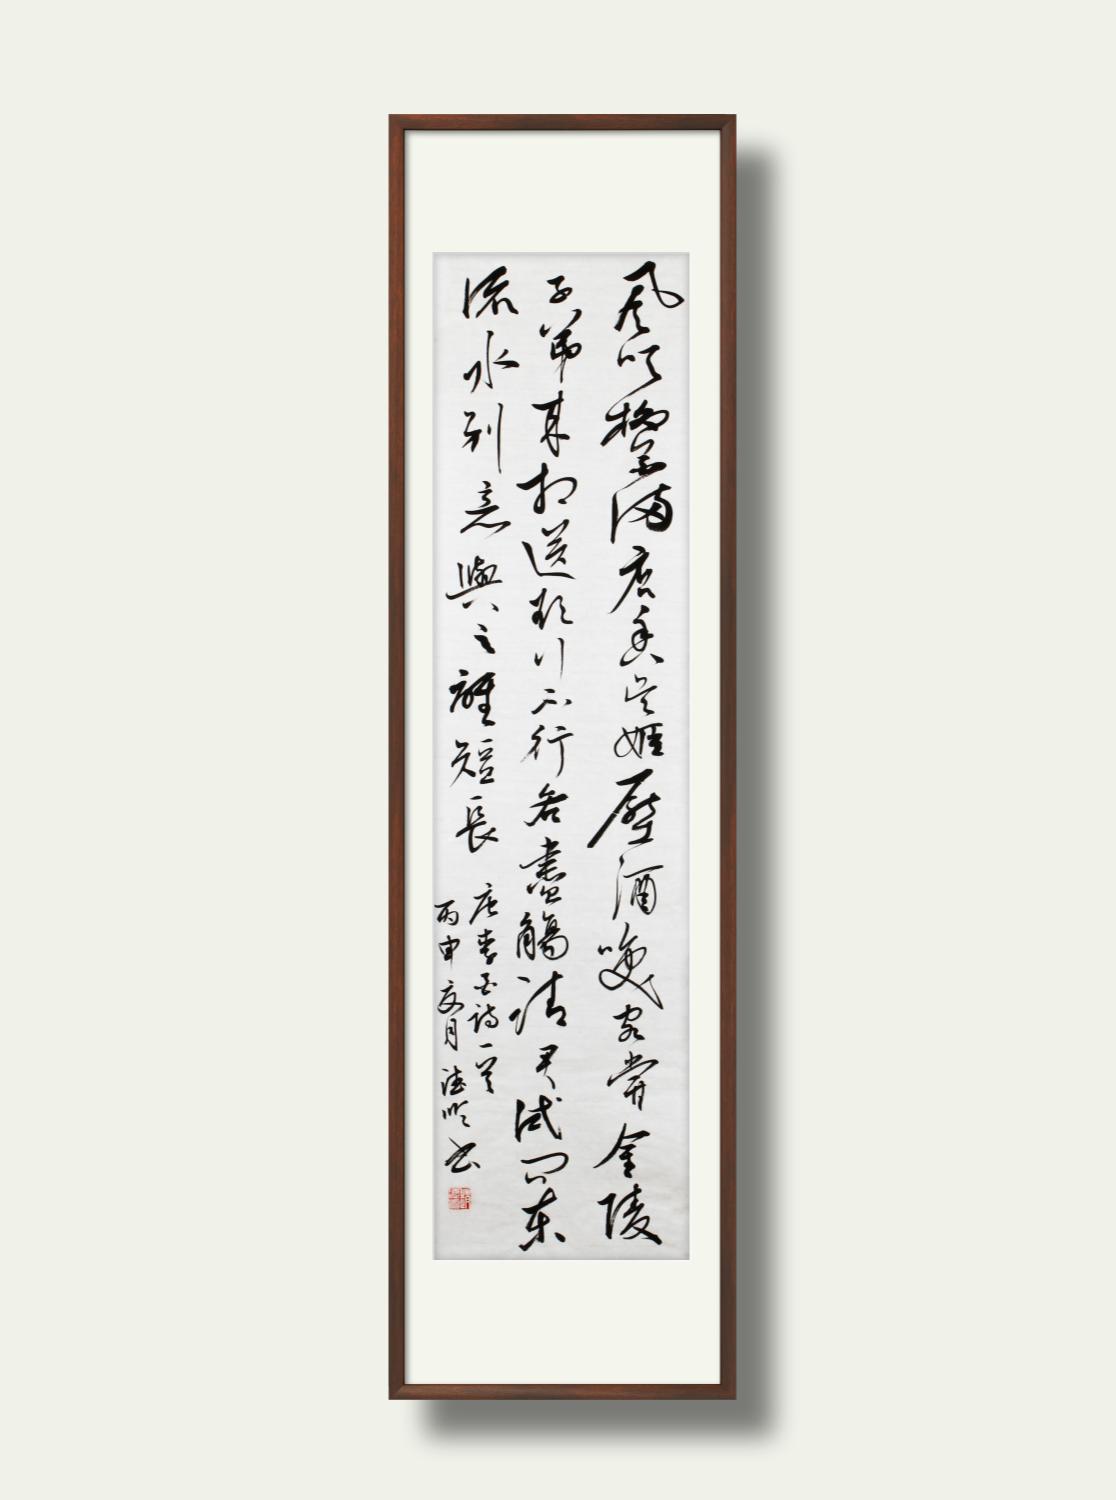 風吹柳花滿店香吳姬壓酒喚客嘗金陵
子弟來相送欲行不行各盡觴請君試問東
流水別意與之誰短長 唐李白詩一首
丙申夏月 書